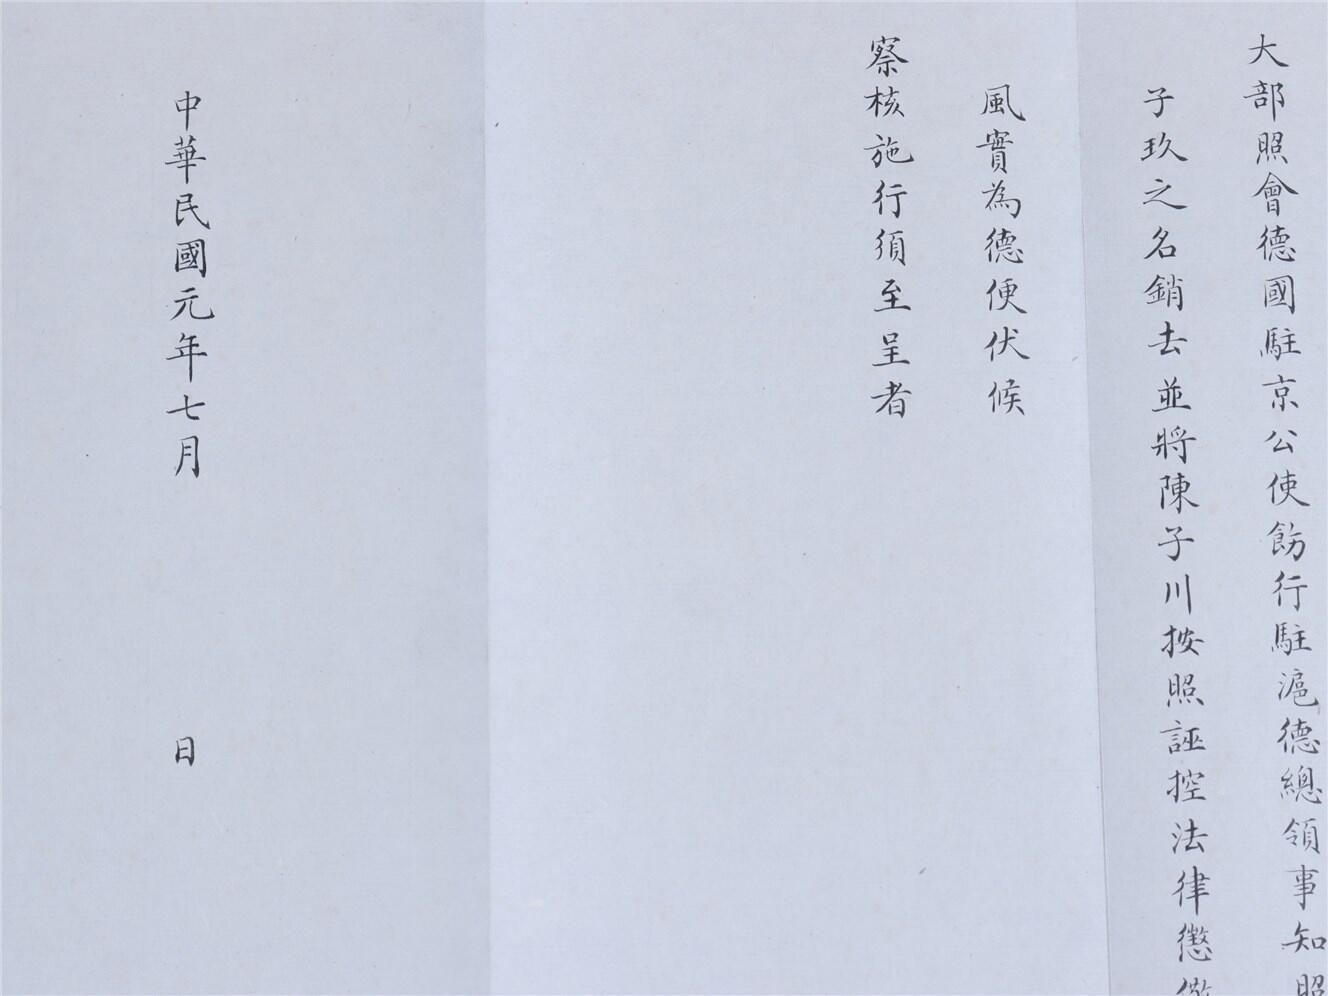 大部照會德國駐京公使飭行駐滬德總領事知照
子玖之名銷去並將陳子川按照誣控法律懲儆
風實為德便伏候
察核施行須至呈者
中華民國元年七月 日